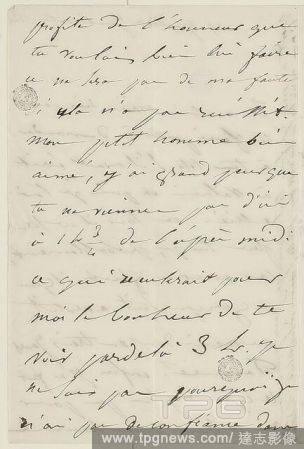 profite de l'honneur que
tu voulais bien lui faire
ce ne sera pas de ma faute
si cela n'a pas réussi.
Mon petit homme bien
aimé, j'ai grand peur que
tu ne viennes pas d'ici
à 1 h 3/4 de l'après midi
ce qui reculerait pour
moi le bonheur de te
voir par delà 3 h. Je
ne sais pas pourquoi je
n'ai pas de confiance dans
TPG
www.tpgnews.com/ 達志影像